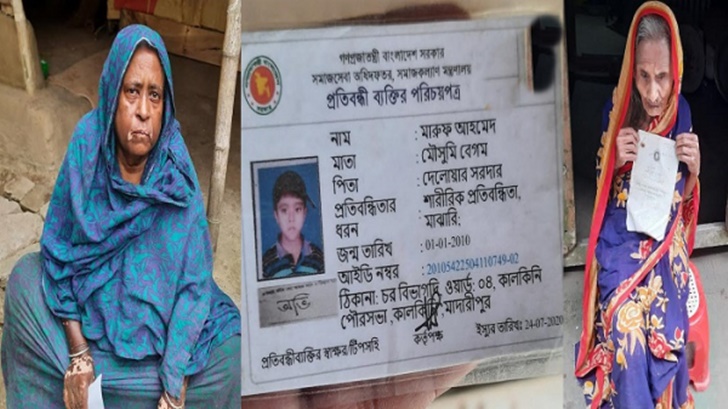 গণপ্রজাতন্ত্রী বাংলাদেশ সরকার
সমাজসেবা অধিদফতর, সমাজকল্যাণ মন্ত্রণালয়
প্রতিবন্ধী ব্যক্তির পরিচয়পত্র
নাম : মারুফ আহমেদ
মাতা : মৌসুমি বেগম
পিতা : দেলোয়ার সরদার
প্রতিবন্ধিতার : শারীরিক প্রতিবন্ধিতা,
ধরন মাঝারি:
জন্ম তারিখ : 01-01-2010
আইডি নম্বর : 20105422504110749-02
ঠিকানা: চর বিভাগদি, ওয়ার্ড: ০৪, কালকিনি
পৌরসভা, কালকিনি, মাদারীপুর
কর্তৃপক্ষ ইস্যুর তারিখ: 24-07-2020
প্রতিবন্ধীব্যক্তির স্বাক্ষর/টিপসহি